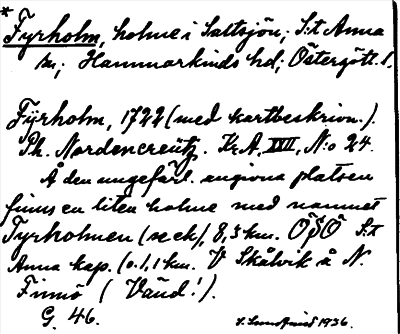 *
Fyrholm, holme i Saltsjön; S:t Anna
sn; Hammarkinds hd; Östergötl. l.
Fyrholm, 1722 (med kartbeskrivn.).
Ph. Nordencreutz. Kr.A. XVII, N:o 24.
Å den ungefärl. angivna platsen
finns en liten holme med namnet
Fyrholmen (se ek), 8,3 km. ÖSÖ S:t
Anna kap. (o. 1,1 km. V Skälvik å N.
Finnö ( Vänd!).
G. 46.
1936.